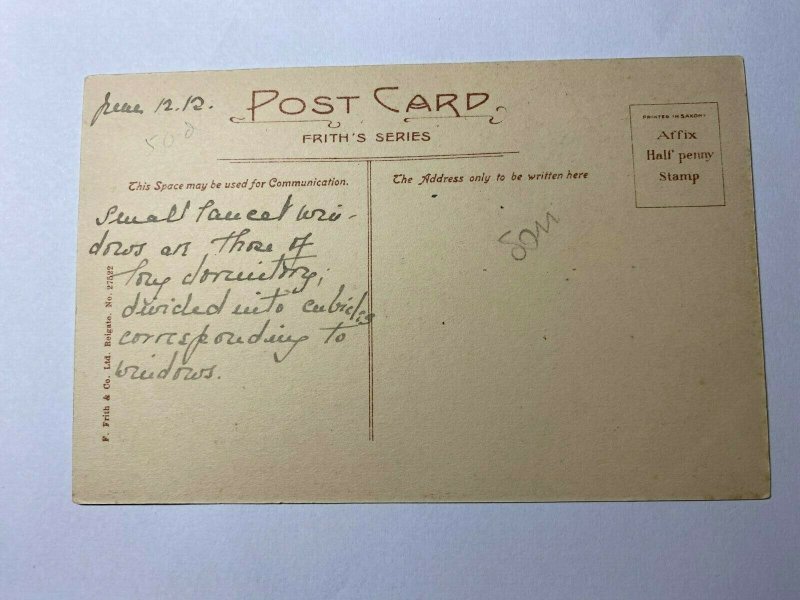 June 12.12.
POST CARD
FRITH'S SERIES
PRINTED IN SAXONY
Affix
Half penny
Stamp
This Space may be used for Communication.
The Address only to be written here
Small lancet win-
dows are those of
long dormitory,
divided into cubicles
corresponding to
windows.
F. Frith & Co. Ltd. Reigate. No. 27522